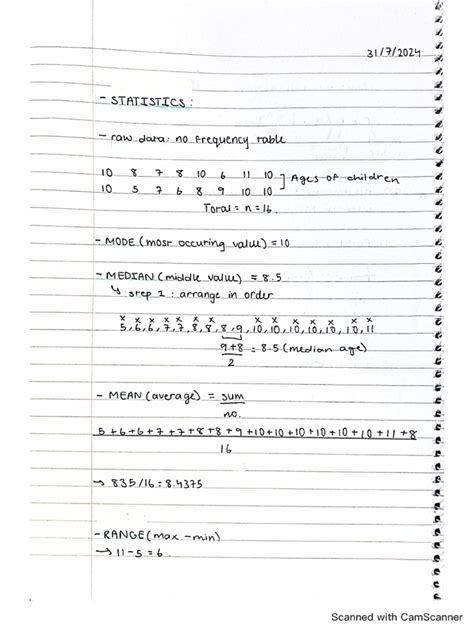 31/7/2024
- STATISTICS:
- raw data: no frequency table
10 8 7 8 10 6 11 10
10 5 7 6 8 9 10 10 ] Ages of children
Total = n = 16.
- MODE (most occuring value) = 10
- MEDIAN (middle value) = 8.5
↳ step 1: arrange in order
x x x x x x x x x x x x x x x x
5, 6, 6, 7, 7, 8, 8, 8, 9, 10, 10, 10, 10, 10, 10, 11
9+8 = 8.5 (median age)
2
- MEAN (average) = sum
no.
5+6+6+7+7+8+8+9+10+10+10+10+10+10+11+8
16
→ 835/16 = 8.4375
- RANGE (max - min)
→ 11-5 = 6.
Scanned with CamScanner